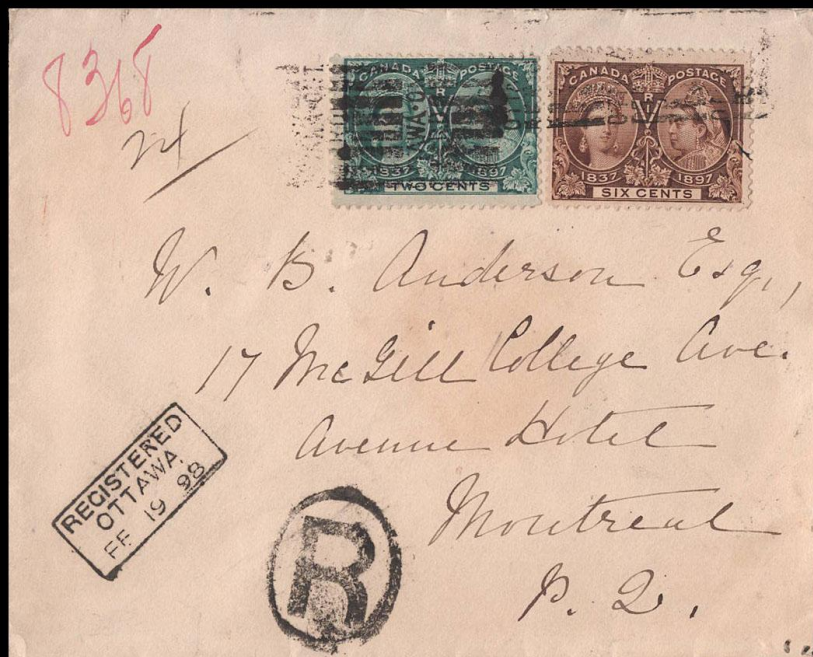 8368
24
CANADA POSTAGE
V R I
1837 1897
TWO CENTS
CANADA POSTAGE
V R I
1837 1897
SIX CENTS
W. B. Anderson Esq.,
17 McGill College Ave.
Avenue Hotel
Montreal
P. Q.
REGISTERED
OTTAWA
FE 19 98
R